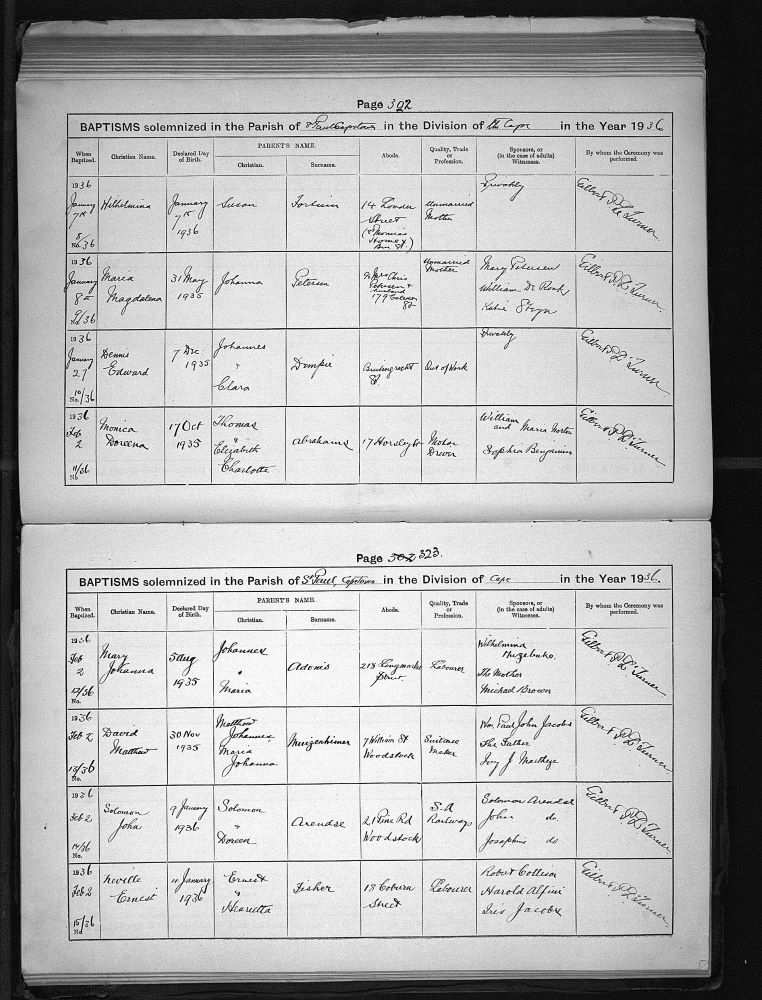 Page 302
BAPTISMS solemnized in the Parish of St Paul Capetown in the Division of the Cape in the Year 1936
When Baptized. Christian Name. Declared Day of Birth. PARENT'S NAME. Christian. Surname. Abode. Quality, Trade or Profession. Sponsors, or (in the case of adults) Witnesses. By whom the Ceremony was performed.
1936
January 7th
No. 8/36
Wilhelmina
January 7th 1936
Susan
14 Loader
Street
(St Monica's
Home
Unmarried
Mother
Privately
Gilbert P. L. Turner
1936
January 8th
No. 9/36
Maria
Magdalena
31 May
1935
Johanna
Petersen
c/o Mrs Chris
Petersen
husband
179
St
Unmarried
Mother
Mary Petersen
William De
Katie Steyn
Gilbert P. L. Turner
1936
January
27
No. 10/36
Dennis
Edward
7 Dec:
1935
Johannes
"
Clara
Dempie
St
Out of Work
Privately
Gilbert P. L. Turner
1936
Feb
2
No 11/36
Monica
Doreena
17 Oct
1935
Thomas
"
Elizabeth
Charlotte
Abrahams
17 Horsley St
Motor
Driver
William
and Maria Norton
Sophia Benjamin
Gilbert P. L. Turner
Page 302 323.
BAPTISMS solemnized in the Parish of St Paul, Capetown in the Division of Cape in the Year 1936.
When Baptized. Christian Name. Declared Day of Birth. PARENT'S NAME. Christian. Surname. Abode. Quality, Trade or Profession. Sponsors, or (in the case of adults) Witnesses. By whom the Ceremony was performed.
1936
Feb
2
12/36
No.
Mary
Johanna
5 Aug
1935
Johannes
"
Maria
Adonis
218 Longmarket
Street.
Labourer
Wilhelmina
The Mother
Michael Brown
Gilbert P. L. Turner
1936
Feb 2
13/36
No.
David
Matthew
30 Nov
1935
Matthew
Johannes
Maria
Johanna
Muizenheimer
7 William St
Woodstock
Suitcase
Maker
Wm. Paul John Jacobs
The Father
Ivy J Marthez
Gilbert P. L. Turner
1936
Feb 2
14/36
No.
Solomon
John
9 January
1936
Solomon
"
Doreen
Arendse
21 Pine Rd
Woodstock
S.A
Railways
Solomon Arendse
John do.
Josephine do
Gilbert P. L. Turner
1936
Feb 2
15/36
No
Neville
Ernest
January
1936
Ernest
"
Henrietta
Fisher
18 Coburn
Street
Labourer
Robert Collison
Harold Alfini
Iris Jacobs
Gilbert P. L. Turner